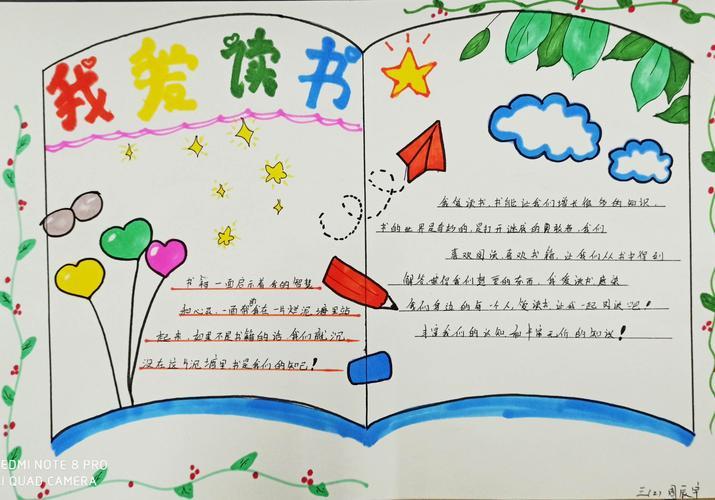 我爱读书
书籍一面启示着我的智慧
和心灵,一面帮我在一片烂泥塘里站
起来,如果不是书籍的话,我们就沉
没在这片泥塘里书是我们的知己!
我爱读书,书能让我们增长很多的知识,
书的世界是奇妙的,是打开迷的勇敢者,我们
喜欢阅读,喜欢书籍,让我们从书中得到
解答世得我们想要的东西,我爱读书
我们身边的每一个人,爱读书让我一起阅读吧!
丰富我们的认知和丰富无价的知识!
三(2)周辰宇
REDMI NOTE 8 PRO
AI QUAD CAMERA